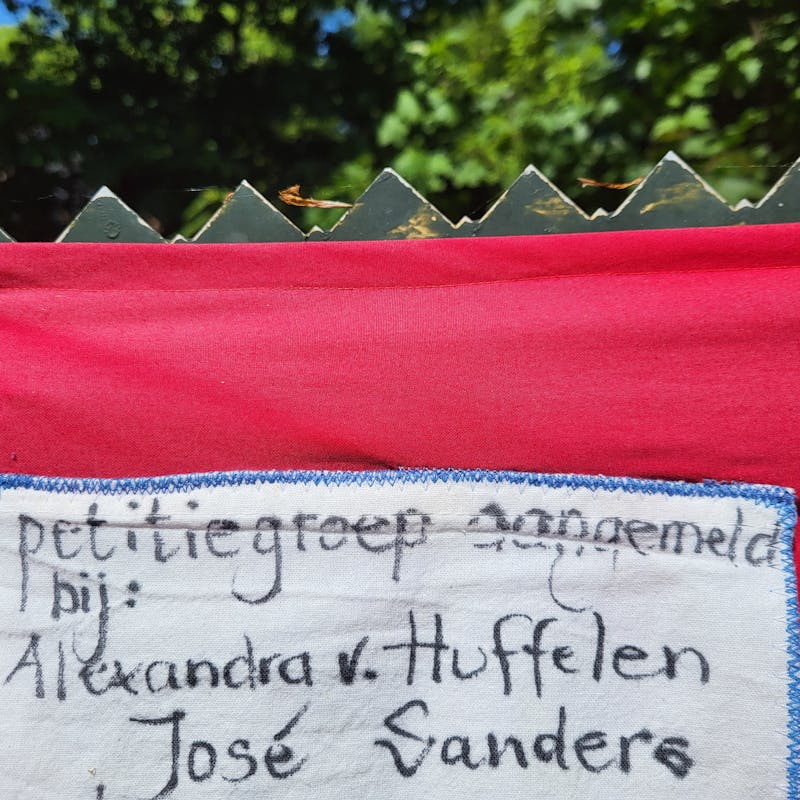 petitiegroep aangemeld
bij:
Alexandra v. Huffelen
José Sanders